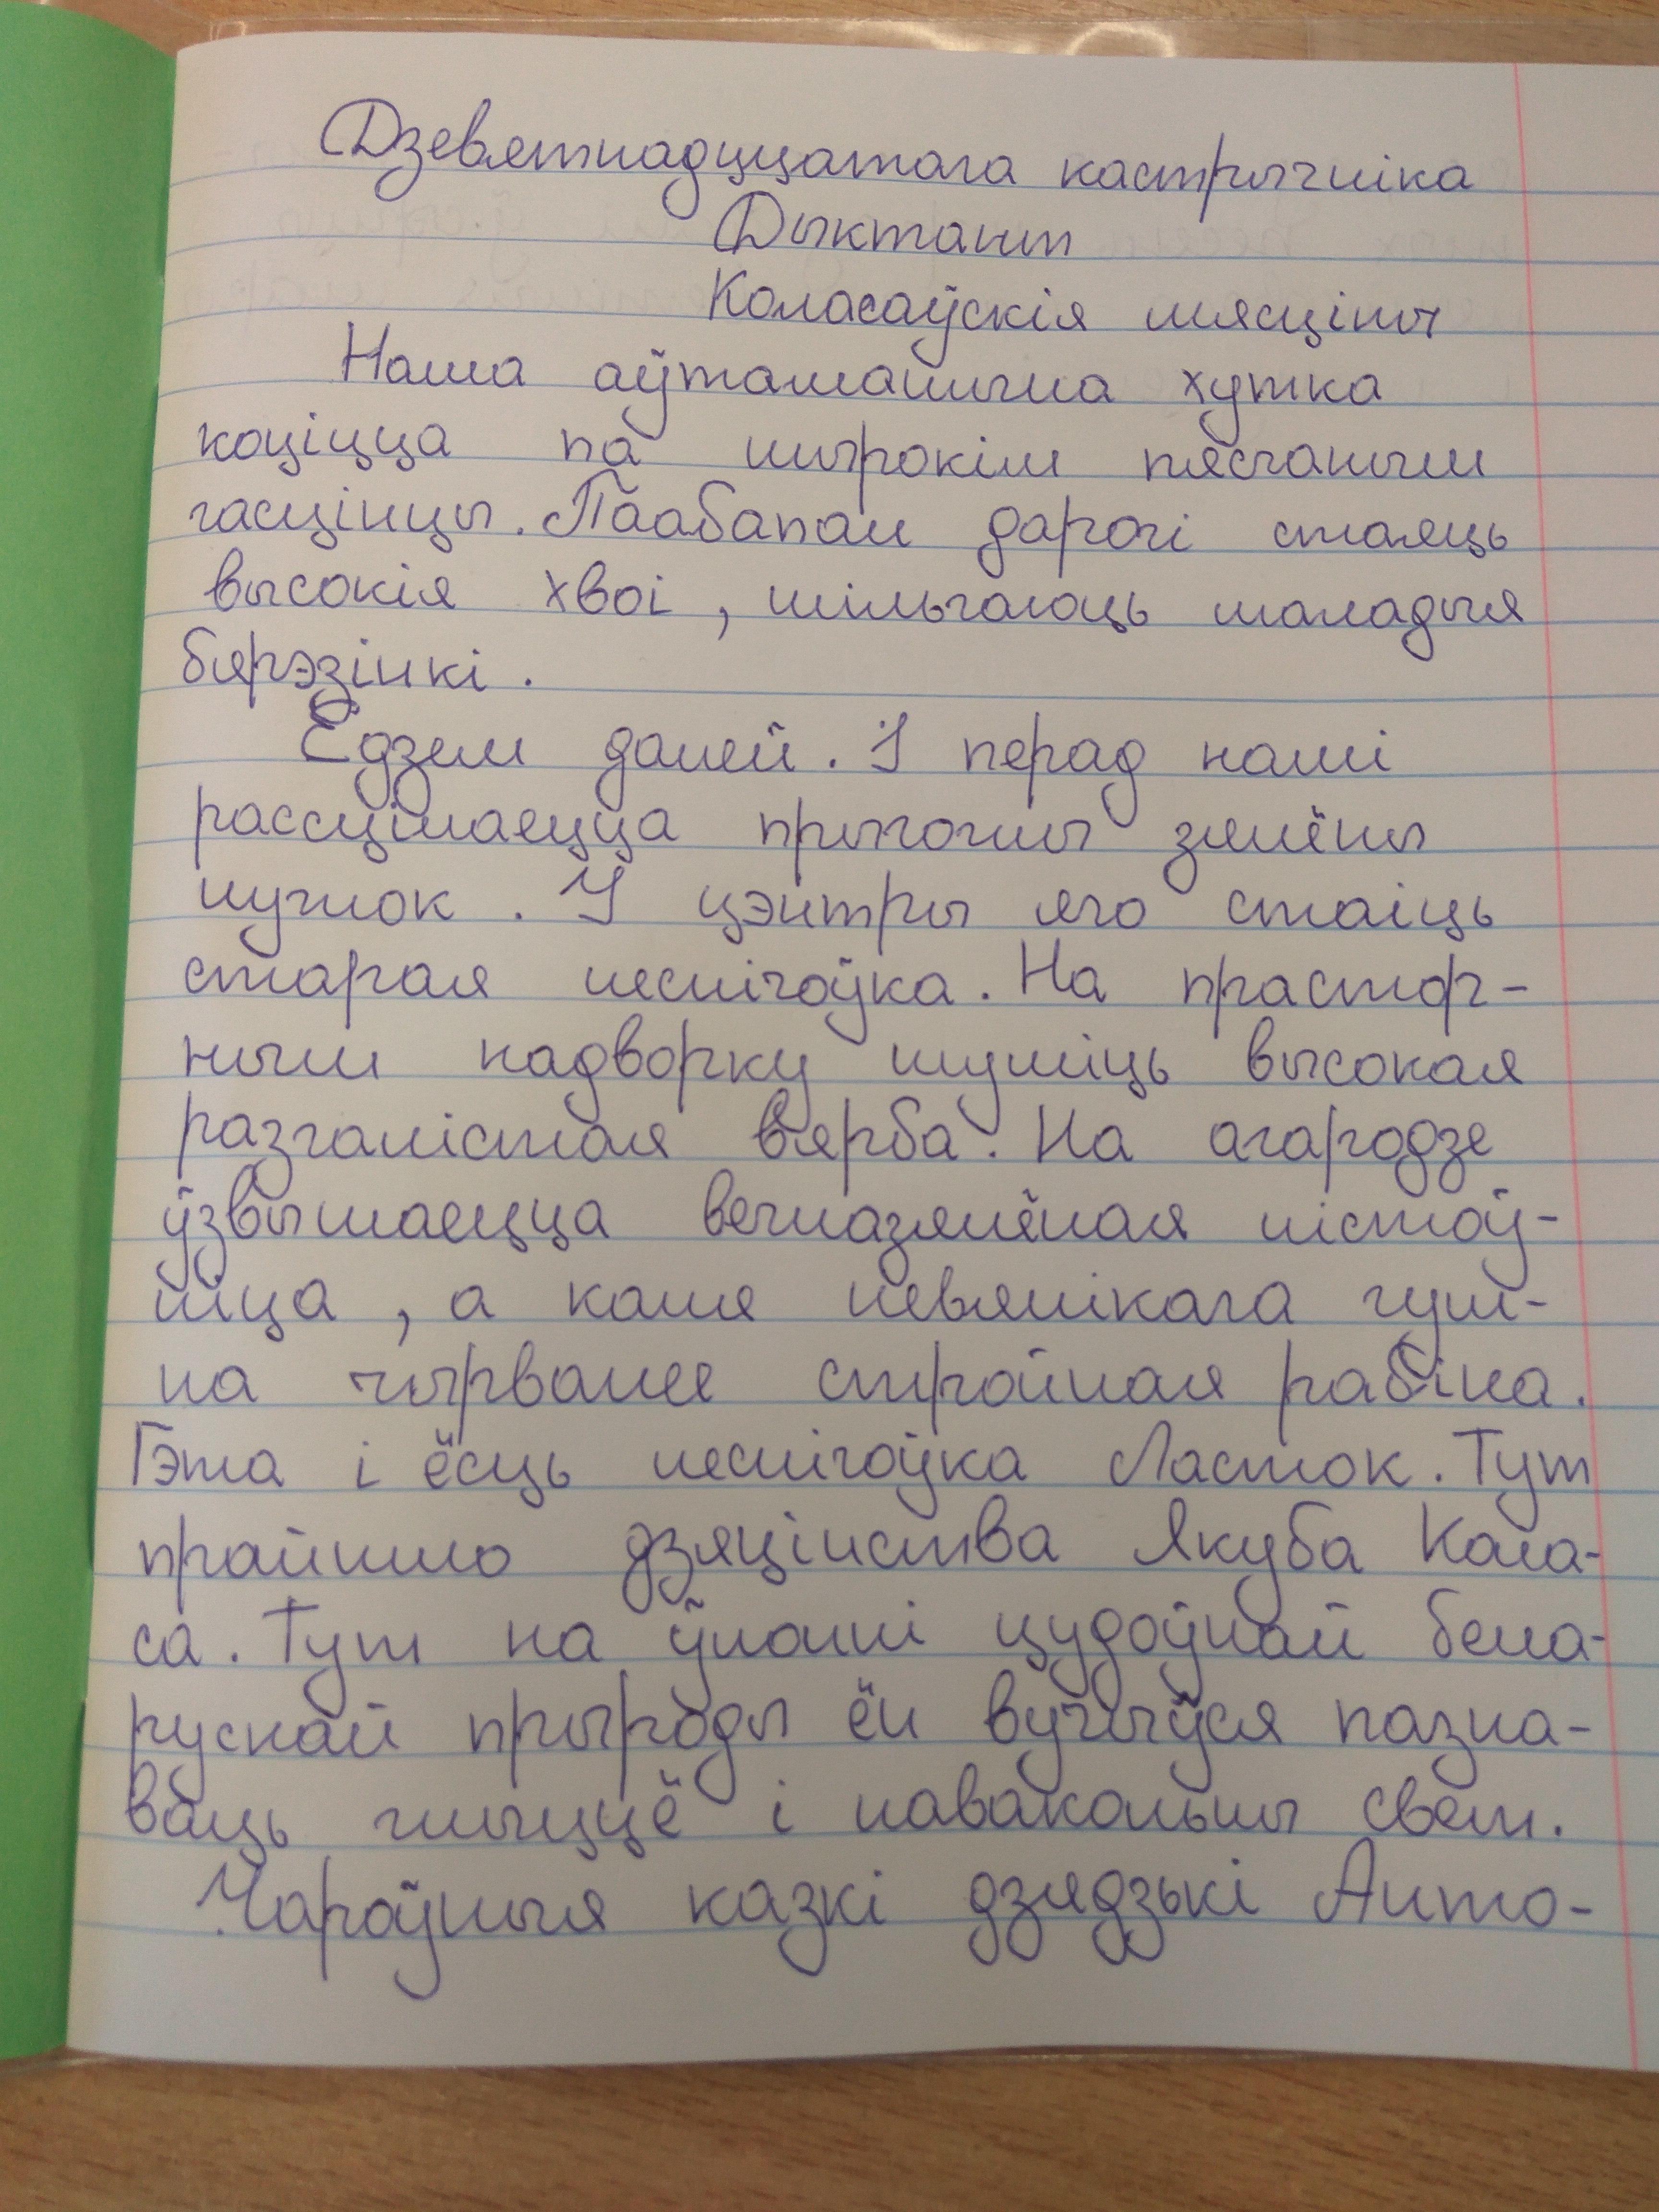 Дзевятнадццатага кастрычніка
Дыктант
Коласаўскія мясціны
Наша аўтамашына хутка
коціцца па шырокім пясчаным
гасцінцы. Паабапал дарогі стаяць
высокія хвоі, мільгаюць маладыя
бярэзінкі.
Едзем далей. І перад намі
рассцілаецца прыгожы зялёны
лужок. У цэнтры яго стаіць
старая леснічоўка. На прастор-
ным надворку шуміць высокая
разгалістая вярба. На агародзе
ўзвышаецца вечназялёная лістоў-
ніца, а каля невялікага гум-
на чырванее стройная рабіна.
Гэта і ёсць леснічоўка Ласток. Тут
прайшло дзяцінства Якуба Кола-
са. Тут на ўлонні цудоўнай бела-
рускай прыроды ён вучыўся пазна-
ваць жыццё і навакольны свет.
Чароўныя казкі дзядзькі Анто-